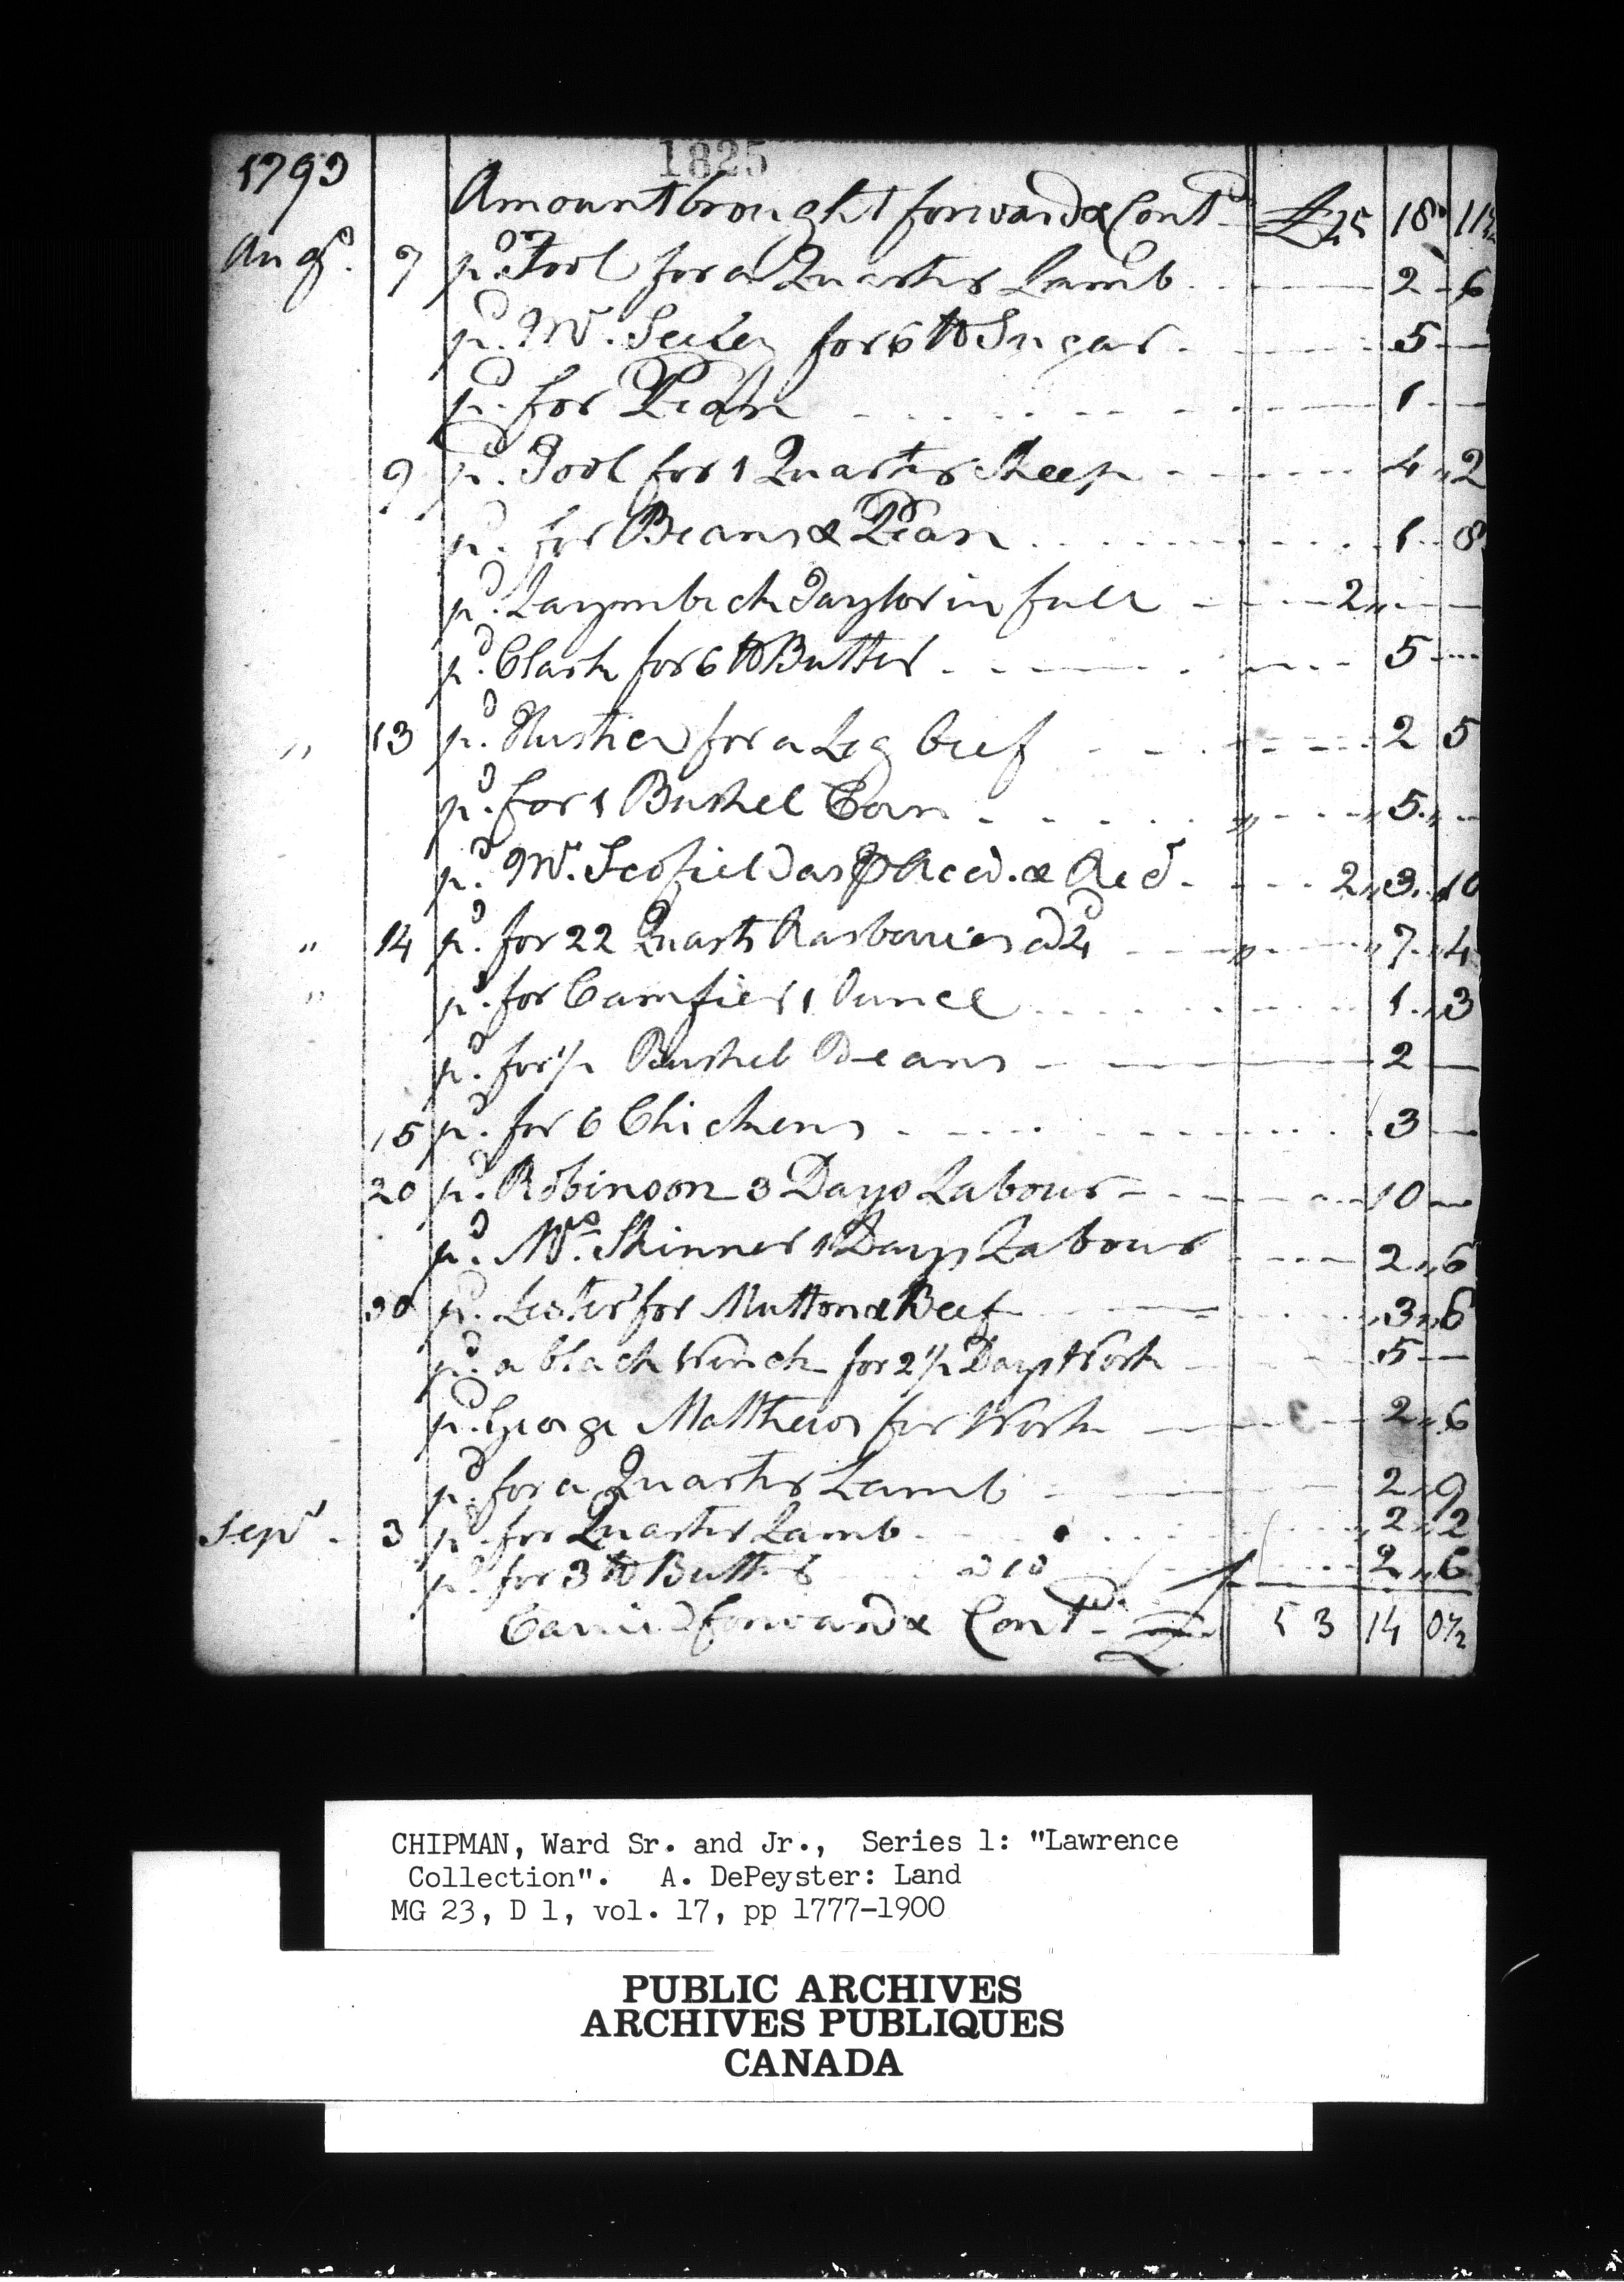 1825
1793 Amount brought forward & Cont.d £ 25 18 11½
Aug.t 7 p.d Tool for a Quarter Lamb 2 6
p.d Mr. Seeley for 6 lb Sugar 5
p.d for Peas 1
9 p.d Tool for 1 Quarter Sheep 4 " 2
p.d for Beans & Peas 1 8
p.d Taylor in full 2 "
p.d Clark for 6 lb Butter 5
" 13 p.d for a Leg beef 2 5
p.d for 1 Bushel Corn " " 5 "
p.d Mr. Scofield as P Acco. & Rec.d 2 " 3 " 10
" 14 p.d for 22 Quarts Rasberries a 4d " " 7 " 4
" p.d for Camfier 1 Ounce 1 " 3
p.d for ½ Bushel Beans 2
15 p.d for 6 Chickens 3
20 p.d Robinson 3 Days Labour 10
p.d Mrs. Skinner 1 Days Labour 2 " 6
30 p.d Lester for Mutton & Beef " 3 " 6
p.d a black Wench for 2½ Days Work 5
p.d George Matthews for Work 2 " 6
p.d for a Quarter Lamb 2 " 9
Sep.r 3 p.d for Quarter Lamb " 2 " 2
p.d for 3 lb Butter a 10 2 " 6
Carried forward & Cont.d £ 53 14 0½
CHIPMAN, Ward Sr. and Jr., Series 1: "Lawrence
Collection". A. DePeyster: Land
MG 23, D 1, vol. 17, pp 1777-1900
PUBLIC ARCHIVES
ARCHIVES PUBLIQUES
CANADA